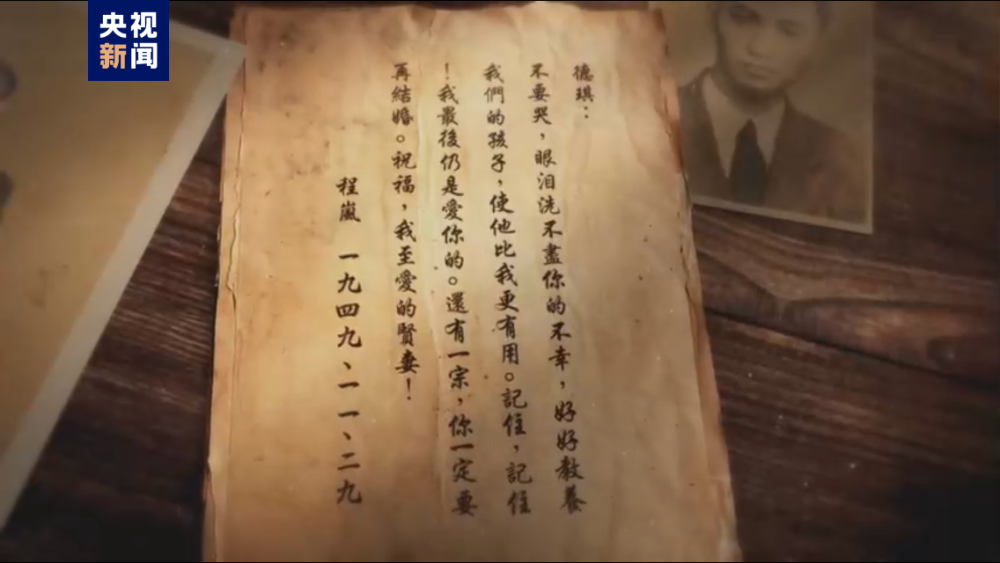 央视
新闻
德琪：
不要哭，眼泪洗不盡你的不幸，好好教養
我們的孩子，使他比我更有用。記住，記住
！我最後仍是愛你的。還有一宗，你一定要
再結婚。祝福，我至愛的賢妻！
程嵐 一九四九、一一、二九